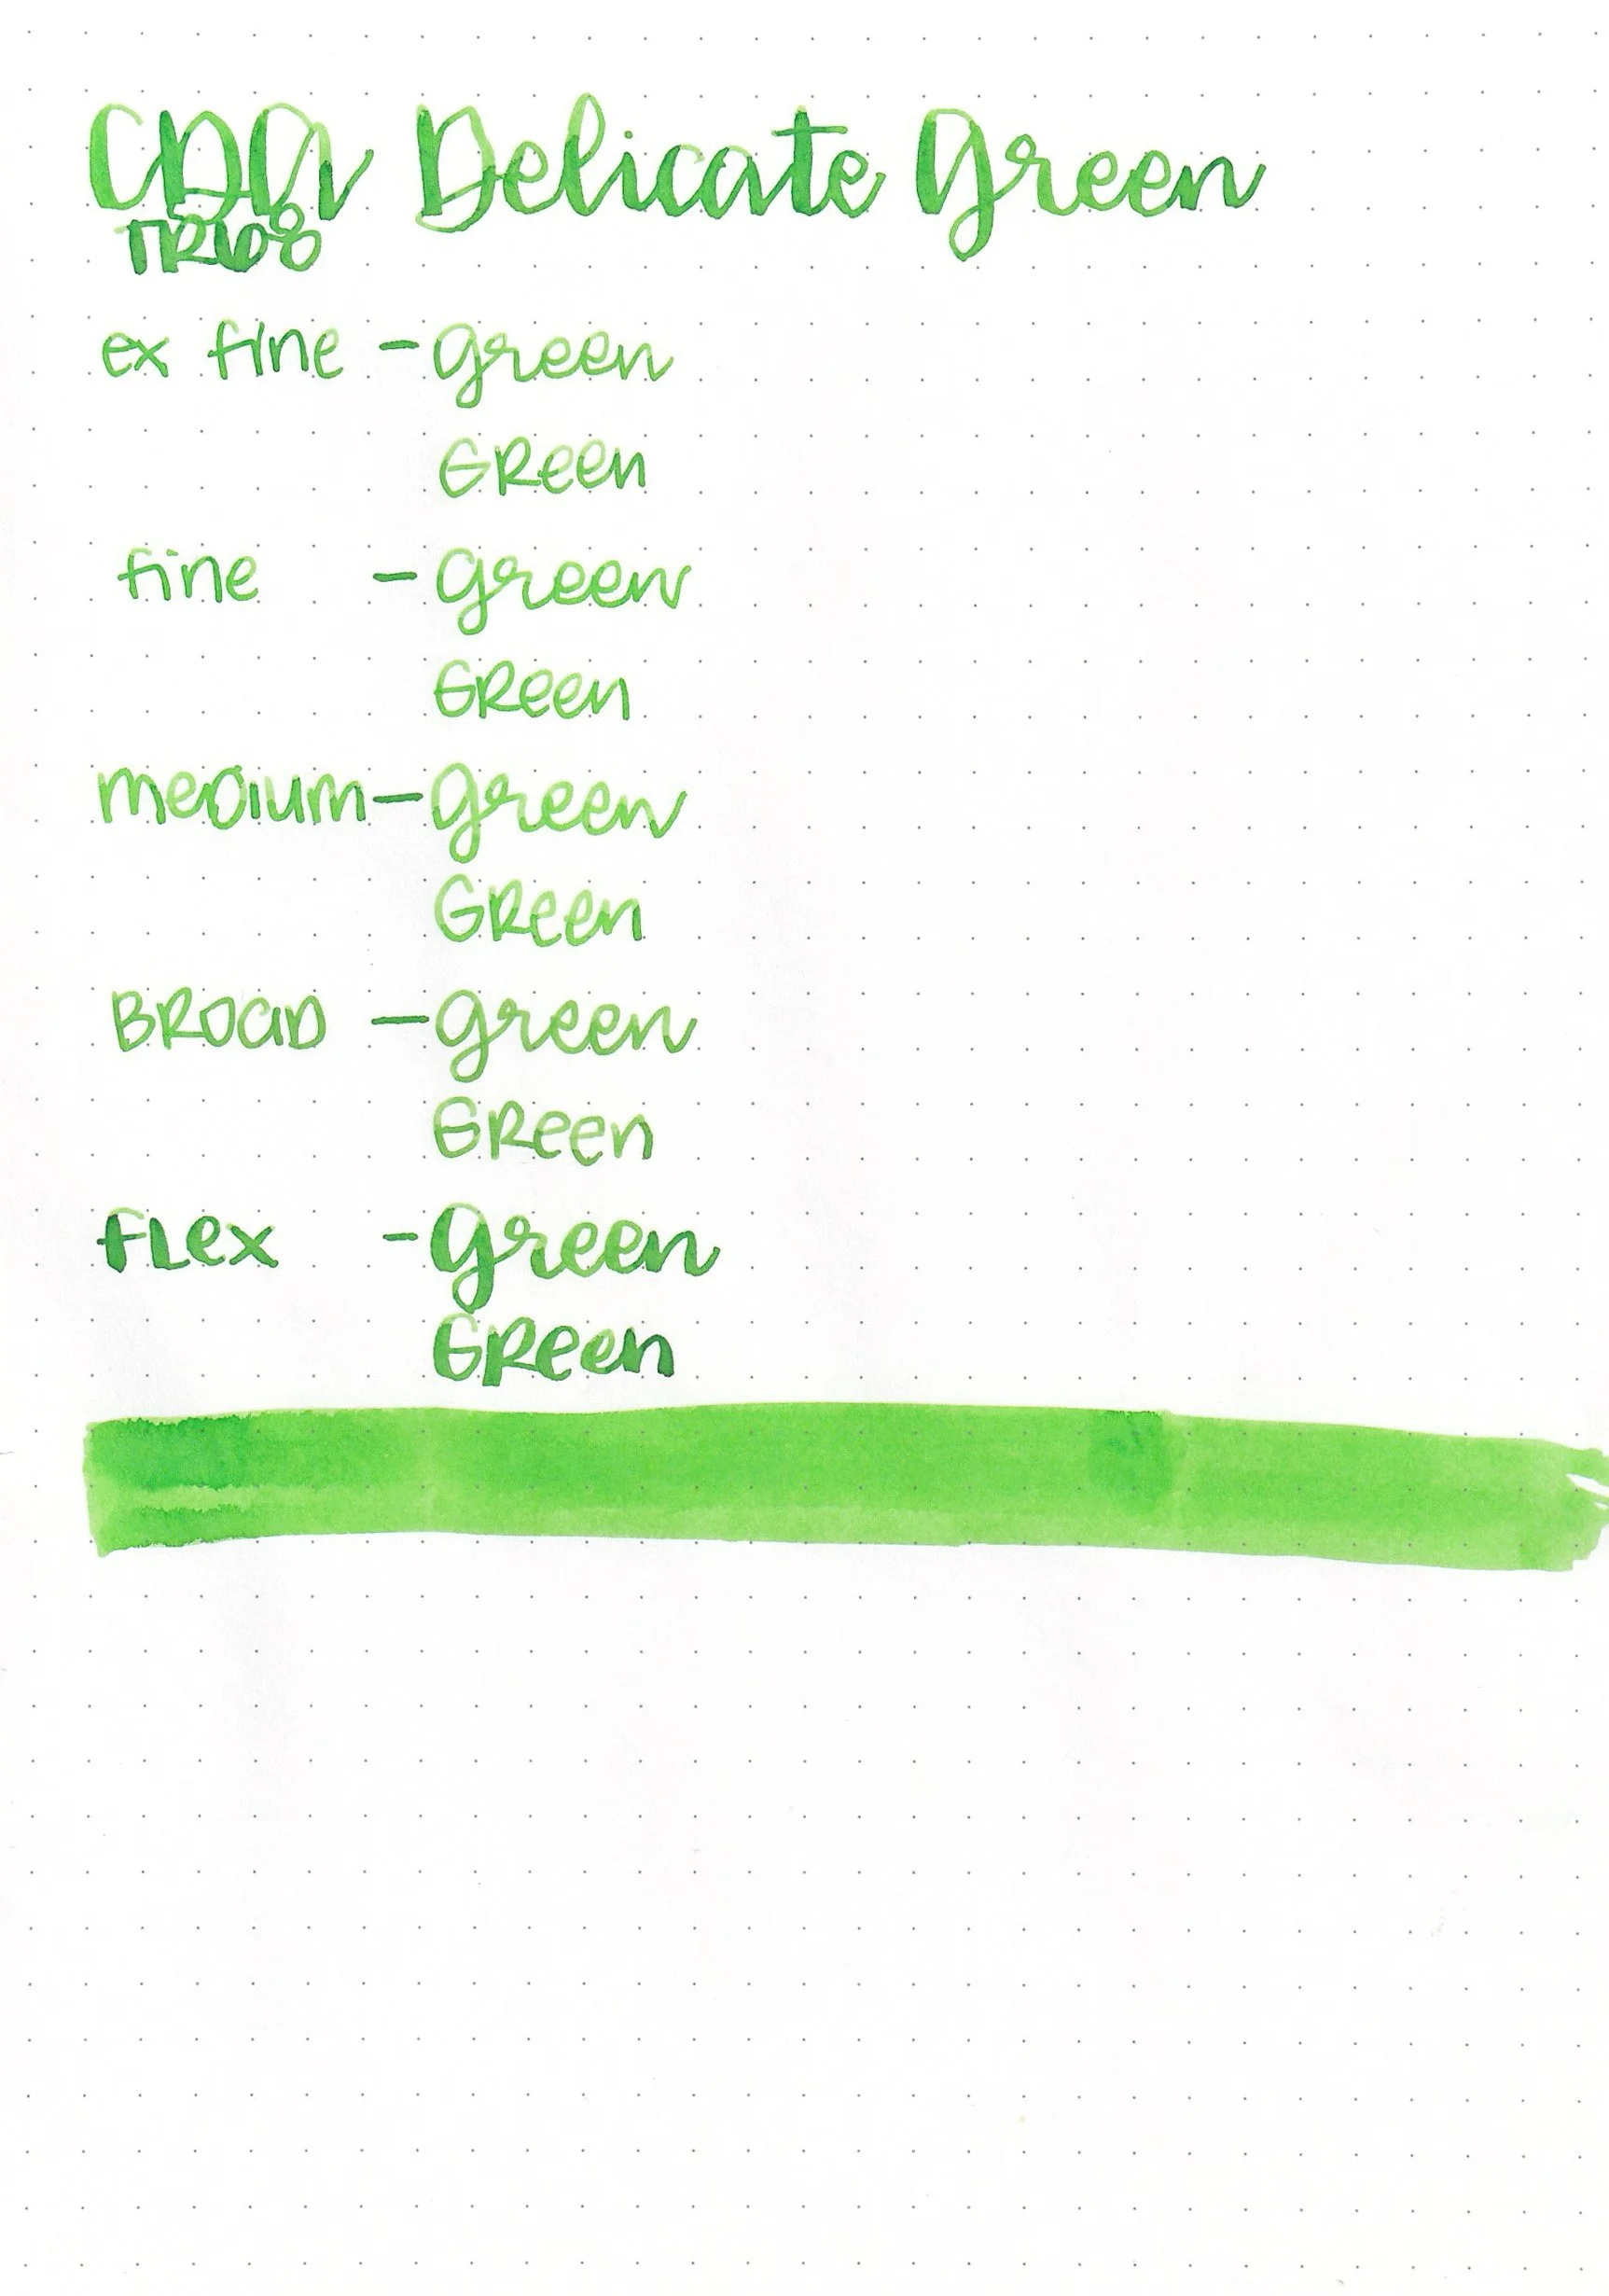 CDA Delicate Green
TR68
ex fine - green
GReen
fine - green
GReen
meDium - green
GReen
BROaD - green
GReen
fLex - green
GReen